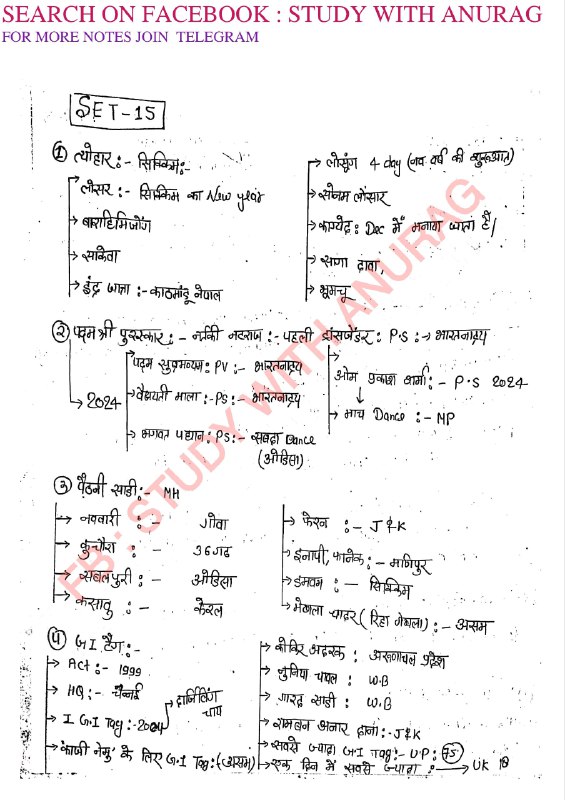 SEARCH ON FACEBOOK : STUDY WITH ANURAG
FOR MORE NOTES JOIN TELEGRAM
SET-15
① त्योहार :- सिक्किम:-
लोसर :- सिक्किम का New year
बाराहिमिजोंग
साकेवा
इंद्र जात्रा :- काठमांडू नेपाल
लोसूंग 4 day (नव वर्ष की शुरूआत)
सोनम लोसार
काग्येद : Dec में मनाया जाता है/
भूमचू
② पद्म श्री पुरस्कार :- नर्तकी नटराज :- पहली ट्रांसजेंडर : P.S :→ भारतनाट्यम
2024
पद्म सुब्रमण्यम : PV :- भारतनाट्यम
वैजयंती माला : PS :- भारतनाट्यम
भगवत प्रधान : PS :- सबदा Dance
(ओडिसा)
ओम प्रकाश शर्मा :- P.S 2024
माच Dance :- MP
③ पैठनी साडी :- MH
नववारी :- गोवा
कुचौरा :- 36 गढ़
सबलपुरी :- ओडिसा
कसावु :- केरल
फेरन :- J & K
इनाफी, फानेक :- मणिपुर
सिक्किम
मेखला चादर ( रिहा मेखला) :- असम
④ G.I टैग :-
Act :- 1999
HQ :- चेन्नई
I G.I Tag :- 2004
दार्जिलिंग
चाय
काजी नेमु के लिए G.I Tag : (असम)
अदरक : अरुणाचल प्रदेश
चावल : W.B
गारद साडी : W.B
रामबन अनार दाना :- J & K
सबसे ज्यादा G.I Tag :- U.P : 75
एक दिन में सबसे ज्यादा :- → UK 18
FB : STUDY WITH ANURAG